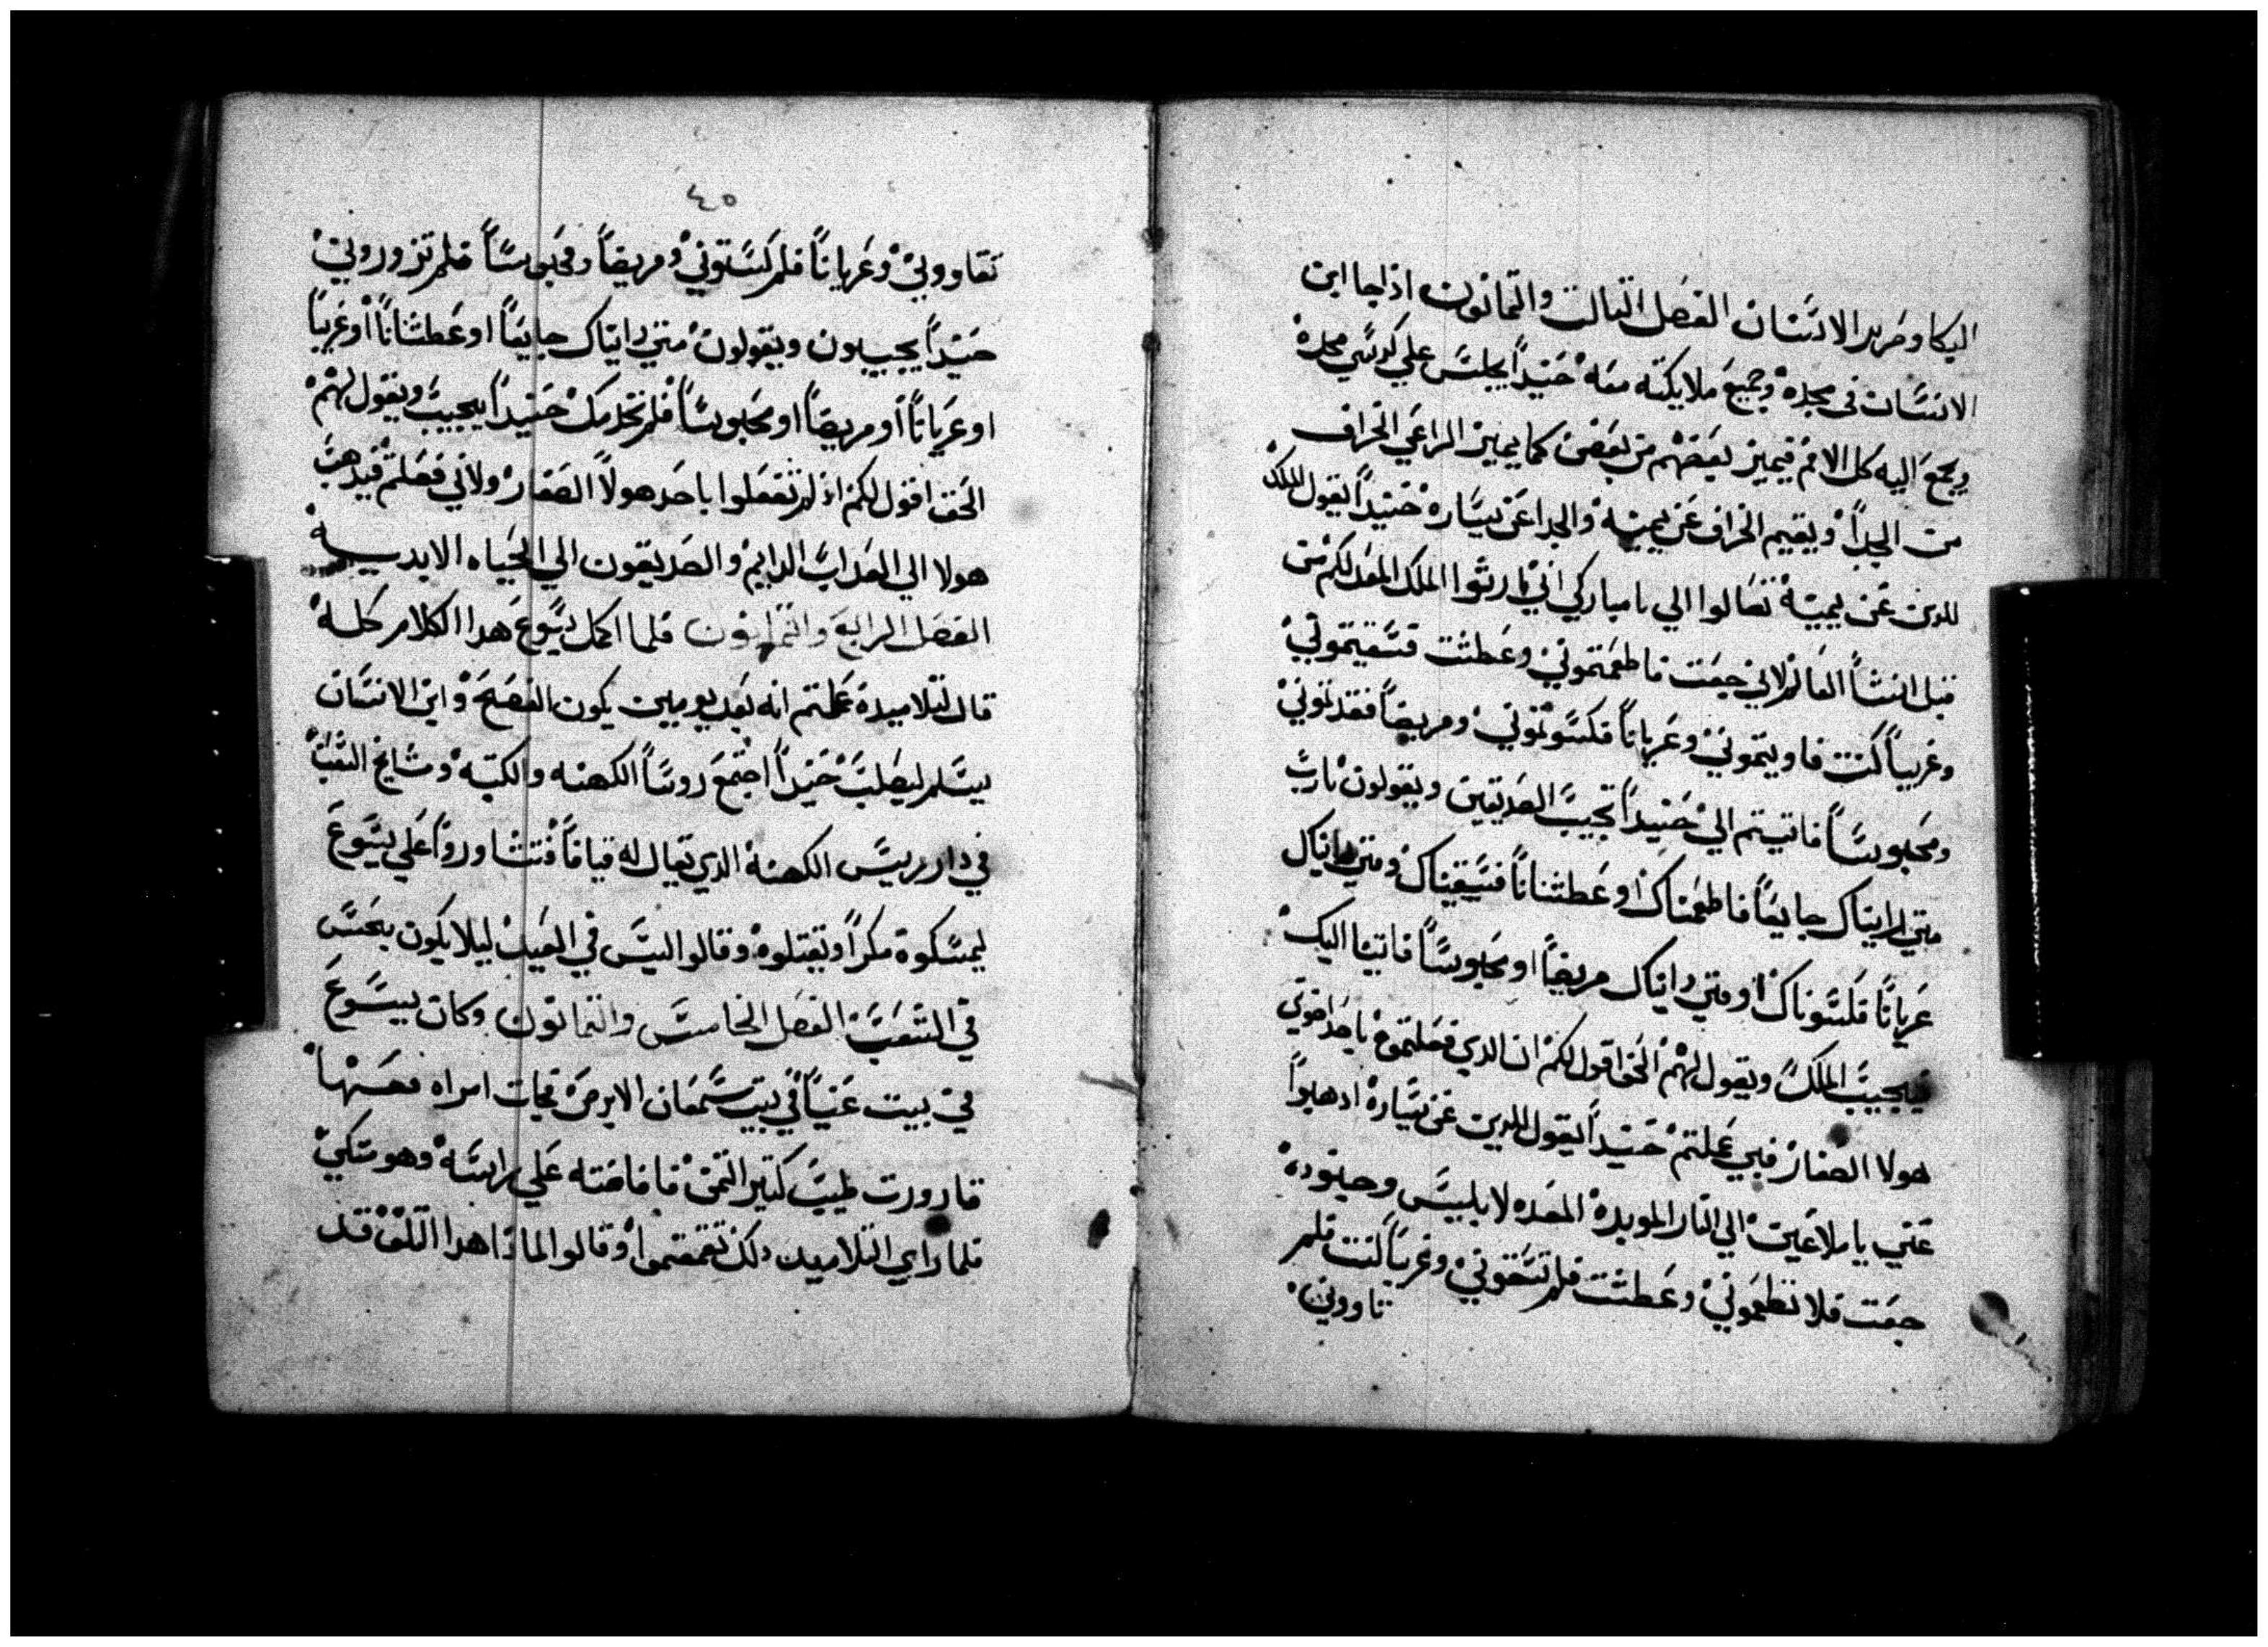 البكا وصرير الاسنان الفصل التالت والتمانون اذا جا ابن
الانسان في مجده وجميع ملايكته معه حنيداً يجلس علي كرسي مجده
ويجمع اليه كل الامم فيميز بعضهم من بعض كما يميز الراعي الخراف
من الجداً ويقيم الخراف عن يمينه والجدا عن يساره حنيداً يقول الملك
للدين عن يمينه تعالوا الي يا مباركي ابي ارثوا الملك المعد لكم من
قبل انشأ العالم لاني جعت فاطعمتموني وعطشت فسقيتموني
وغريباً كنت فاويتموني وعرياناً فكسوتموني ومريضاً فعدتموني
ومحبوساً فاتيتم الي حنيداً تجيب الصديقين ويقولون يارب
متي رايناك جايعاً فاطعمناك او عطشاناً فسقيناك ومتي رايناك
عرياناً فكسوناك او متي رايناك مريضاً او محبوساً فاتينا اليك
فيجيب الملك ويقول لهم الحق اقول لكم ان الدي فعلتموه باحد اخوتي
هولا الصغار فبي عملتم حنيداً يقول للدين عن يساره ادهبوا
عني يا ملاعين الي النار الموبده المعده لابليس وجنوده
جعت فلا تطعموني وعطشت فلم تسقوني وغريباً كنت فلم
تاووني
٤٥
تقاووني وعرياناً فلم كستوني ومريضاً وفي محبوساً فلم تزوروني
حنيداً يجيبون ويقولون متي رايناك جايعاً او عطشاناً او غريباً
او عرياناً او مريضاً او محبوساً فلم نخدمك حنيداً يجيب ويقول لهم
الحق اقول لكم اذ لم تفعلوا باحد هولاً الصغار ولا بي فعلتم فيدهب
هولا الي العداب الدايم والصديقون الي الحياه الابديه
الفصل الرابع والتمانون فلما اكمل يسوع هدا الكلام كله
قال لتلاميده علمتم انه بعد يومين يكون الفصح وابن الانسان
يسلم ليصلب حنيداً اجتمع روساً الكهنه والكتبه ومشايخ الشعب
في دار رييس الكهنه الدي يقال له قيافاً فتشاوروا علي يسوع
ليمسكوه مكراً وتقتلوه وقالوا ليس في العيد ليلا يكون سجس
في الشعب الفصل الخامس والتمانون وكان يسوع
في بيت عنياً في بيت سمعان الابرص فجات امراه معها
قارورت طيب كتير التمن فافاضته علي راسه وهو متكي
فلما راي التلاميد دلك تقمقموا وقالوا لمادا هدا التلف قد